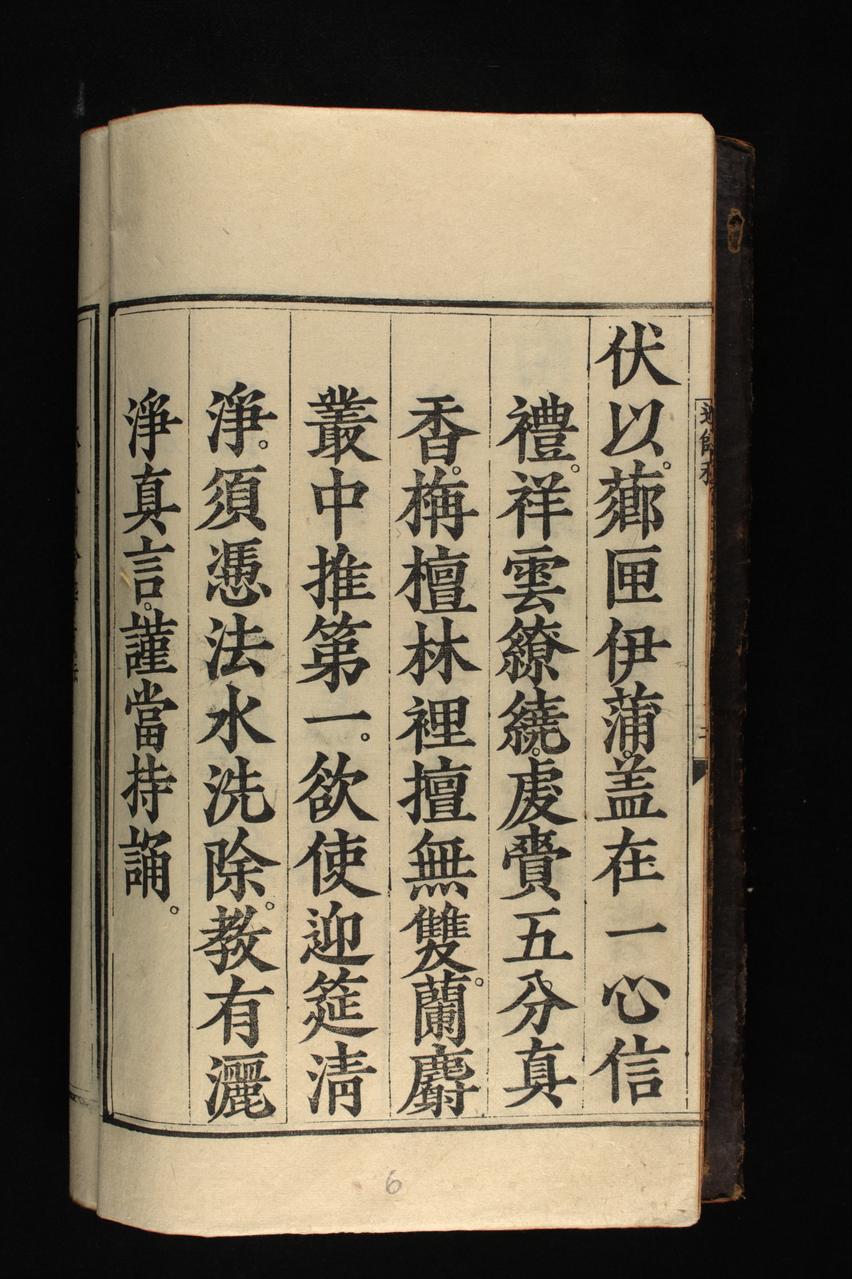 伏以。薌匣伊蒲。盖在一心信
禮。祥雲繚繞。䖏賷五分真
香。栴檀林裡擅無雙。蘭麝
叢中推第一。欲使迎筵清
淨。須憑法水洗除。教有灑
淨真言。謹當持誦。
6